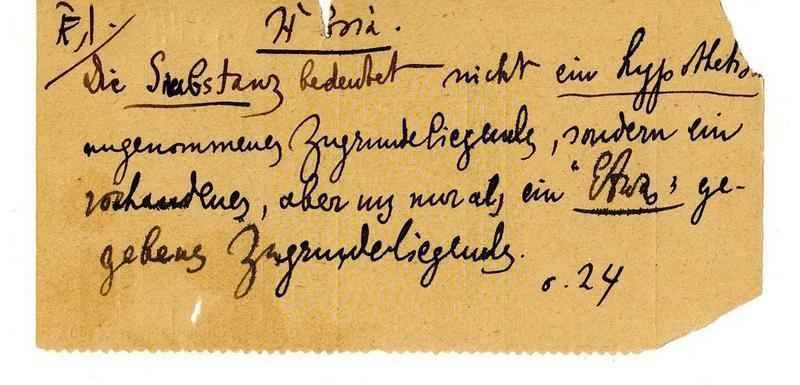 F,1.
Die Substanz bedeutet nicht ein hypothetisch
angenommenes Zugrundeliegendes, sondern ein
vorhandenes, aber uns nur als ein "Etwas" ge-
gebenes Zugrundeliegendes.
σ. 24